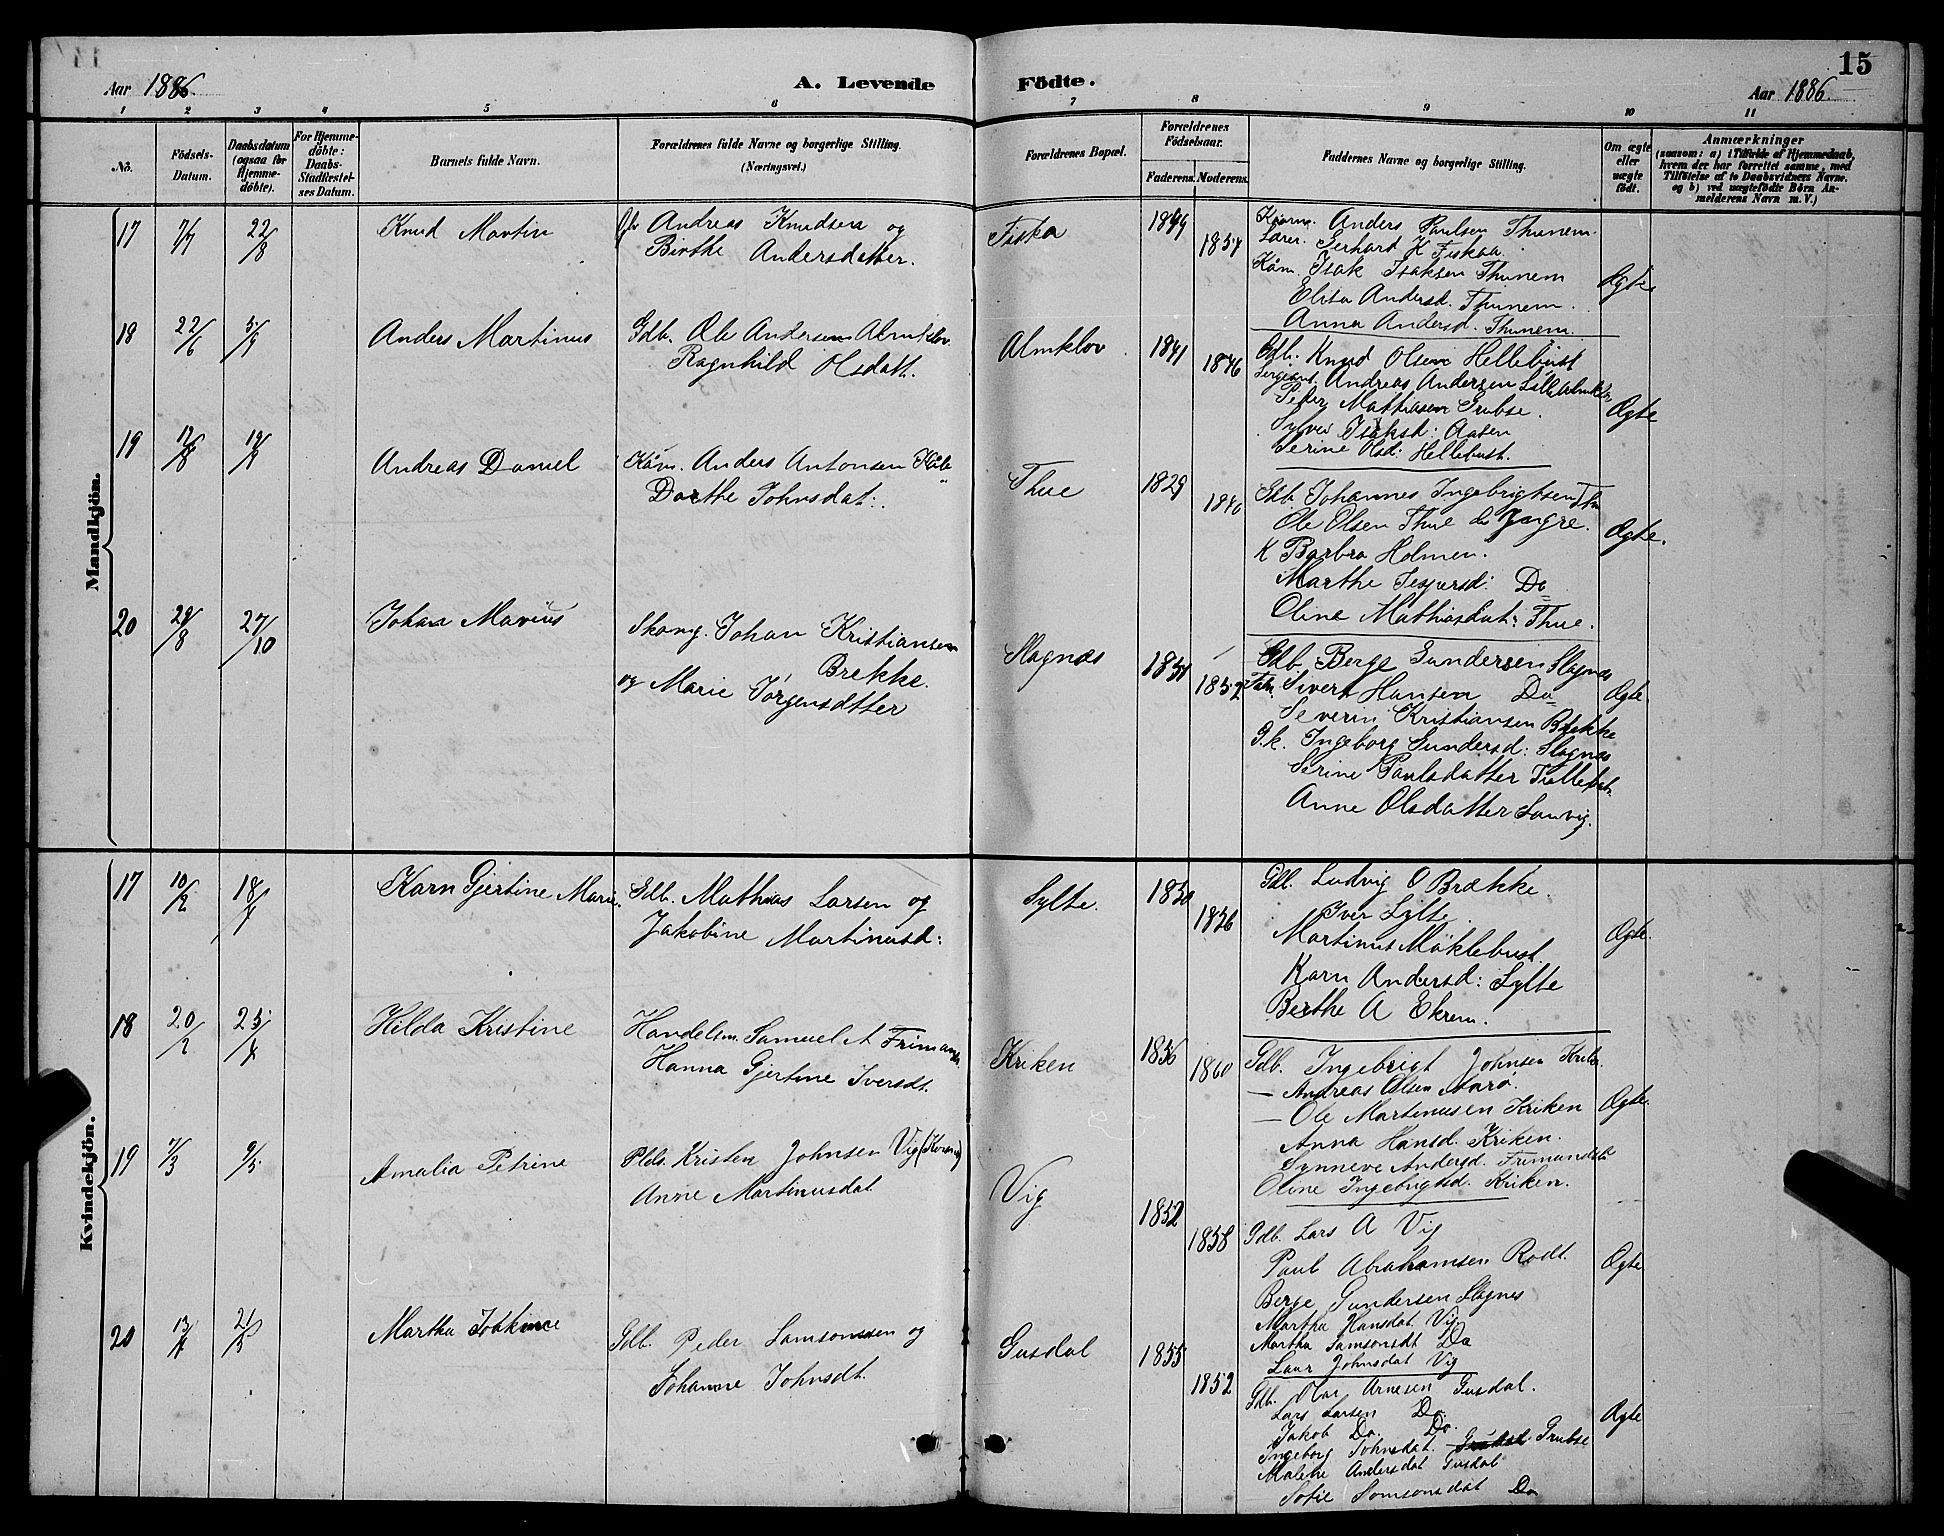 Aar 1886.
A. Levende Födte.
15
Aar 1886.
1 2 3 4 5 6 7 8 9 10 11
No.
Födsels-Datum.
Daabsdatum (ogsaa for Hjemme-döbte).
For Hjemme-döbte: Daabs-Stadfæstel-ses Datum.
Barnets fulde Navn.
Forældrenes fulde Navne og borgerlige Stilling. (Næringsvei.)
Forældrenes Bopæl.
Forældrenes Födselsaar.
Faderens. Moderens.
Faddernes Navne og borgerlige Stilling.
Om ægte eller uægte födt.
Anmærkninger
(saasom: a) i Tilfælde af Hjemmedaab, hvem der har forrettet samme, med Tilföielse af to Daabsvidners Navne. og b) ved uægtefödte Börn Anmelderens Navn m. V.)
Mandkjön.
17 7/7 22/8 Knud Martin
Andreas Knudsen og
Birthe Andersdatter.
Fiska 1857
Anders Paulsen Thunem.
Lærer. Gerhard K Fiskaa.
Isak Isaksen Thunem
Elisa Andersd. Thunem.
Anna Andersd. Thunem.
Ægte
18 22/6 5/9 Anders Martinus
Gdb. Ole Andersen Almklov.
Ragnhild Olsdatt.
Almklov. 1841 1846
Gdb. Knud Olsen Hellebust
Sergeant. Andreas Andersen Lille Almklov
Peder Mathiasen Grubse.
Isaksd: Aasen
Serine Olsd: Hellebust.
Ægte
19 Andreas Daniel
Anders Antonsen
Dorthe Johnsdat:
Thue 1829 1840
Gdb. Johannes Ingebrigtsen Thue
Ole Olsen Thue d. Yngre.
K Barbra Holmen.
Marthe Jesparsd: Do
Oline Mathiasdat: Thue.
Ægte.
20 29/8 27/10 Johan Marius
Johan Kristiansen
Brekke.
og Marie Jörgensdtter
Slagnæs 1852
Gdb. Berge Gundersen Slagnæs
Sivert Hansen Do
Severin Kristiansen Brekke
P.k. Ingeborg Gundersd: Slagnæs
Serine Paulsdatter
Anne Olsdatter Sanvig.
Ægte.
Kvindekjön.
17 10/2 18/4 Karn Gjertine Marie.
Gdb. Mathias Larsen og
Jakobine Martinusd:
Sylte. 1850 1856
Gdb. Ludvig O Brække.
Iver Sylte.
Martinus Möklebust.
Karn Andersd: Sylte
Berthe A Ekrem.
Ægte.
18 20/2 25/4 Hilda Kristine
Handelsm. Samuel A
Hanna Gjertine Iversdt.
Kriken 1856 1860
Gdb. Ingebrigt Johnsen Kriken
— Andreas Olsen Aarö.
— Ole Martinusen Kriken
Anna Hansd. Kriken.
Synneve Andersd.
Oline Ingebrigtsd. Kriken.
Ægte.
19 7/3 9/5 Amalia Petrine
Plds. Kristen Johnsen Vig
Anne Martinusdat.
Vig 1852 1858
Gdb. Lars A Vig
Paul Abrahamsen Rodt.
Berge Gundersen Slagnes
Martha Hansdat Vig
Martha Samsonsdt Do
Johnsdat Vig
Ægte
20 13/4 21/5 Martha
Gdb. Peder Samsonsen og
Johanne Johnsdt.
Gusdal 1855 1852
Gdb. Arnesen Gusdal.
Lars Larsen Do.
Jakob Do. Do.
Ingeborg Johnsdat. Grubse
Malene Andersdat Gusdal
Sofie Samsonsdat Do
Ægte